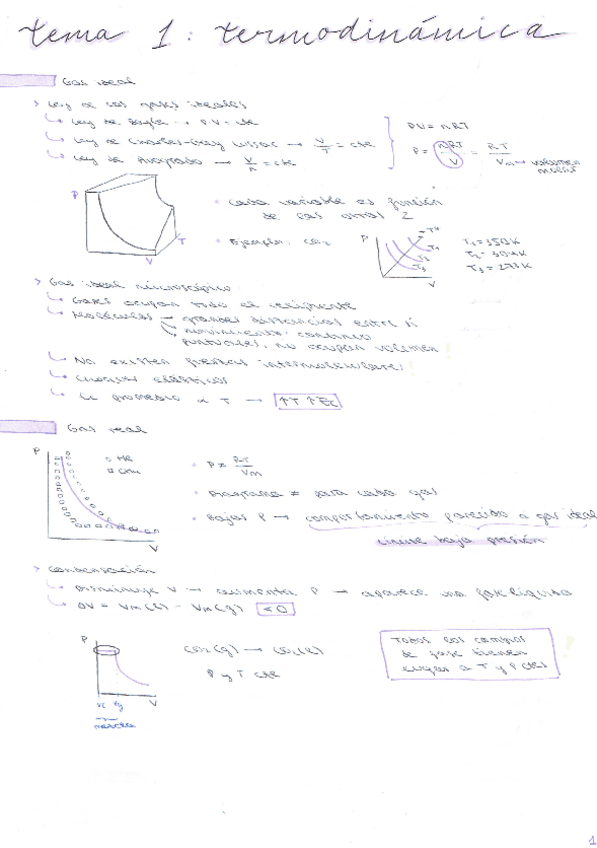 tema 1: termodinámica
Gas ideal
> Ley de los gases ideales
Ley de Boyle → P·V = cte
Ley de Charles-Gay Lussac → V/T = cte
Ley de Avogadro → V/n = cte
PV = nRT
P = nRT/V = RT/Vm → volumen molar
P
T
V
• cada variable es función
de las otras 2
• Ejemplo: CO2
P
T4
T1
T2
T3
V
T3 = 273K
> Gas ideal microscópico
Gases ocupan todo el recipiente
Moléculas → grandes distancias entre sí
movimiento continuo
puntuales, no ocupan volumen
No existen fuerzas intermoleculares
Choques elásticos
Ec promedio ∝ T → ↑T ↑Ec
Gas real
P
V
• P ≠ RT/Vm
• Diagrama ≠ para cada gas
• Bajas P → comportamiento parecido a gas ideal
cumple baja presión
> Condensación
Disminuye V → aumenta P → aparece una fase líquida
ΔV = Vm(l) - Vm(g) <0
P
V
mezcla
CO2(g) → CO2(l)
P y T cte
Todos los cambios
de fase tienen
lugar a T y P cte
1